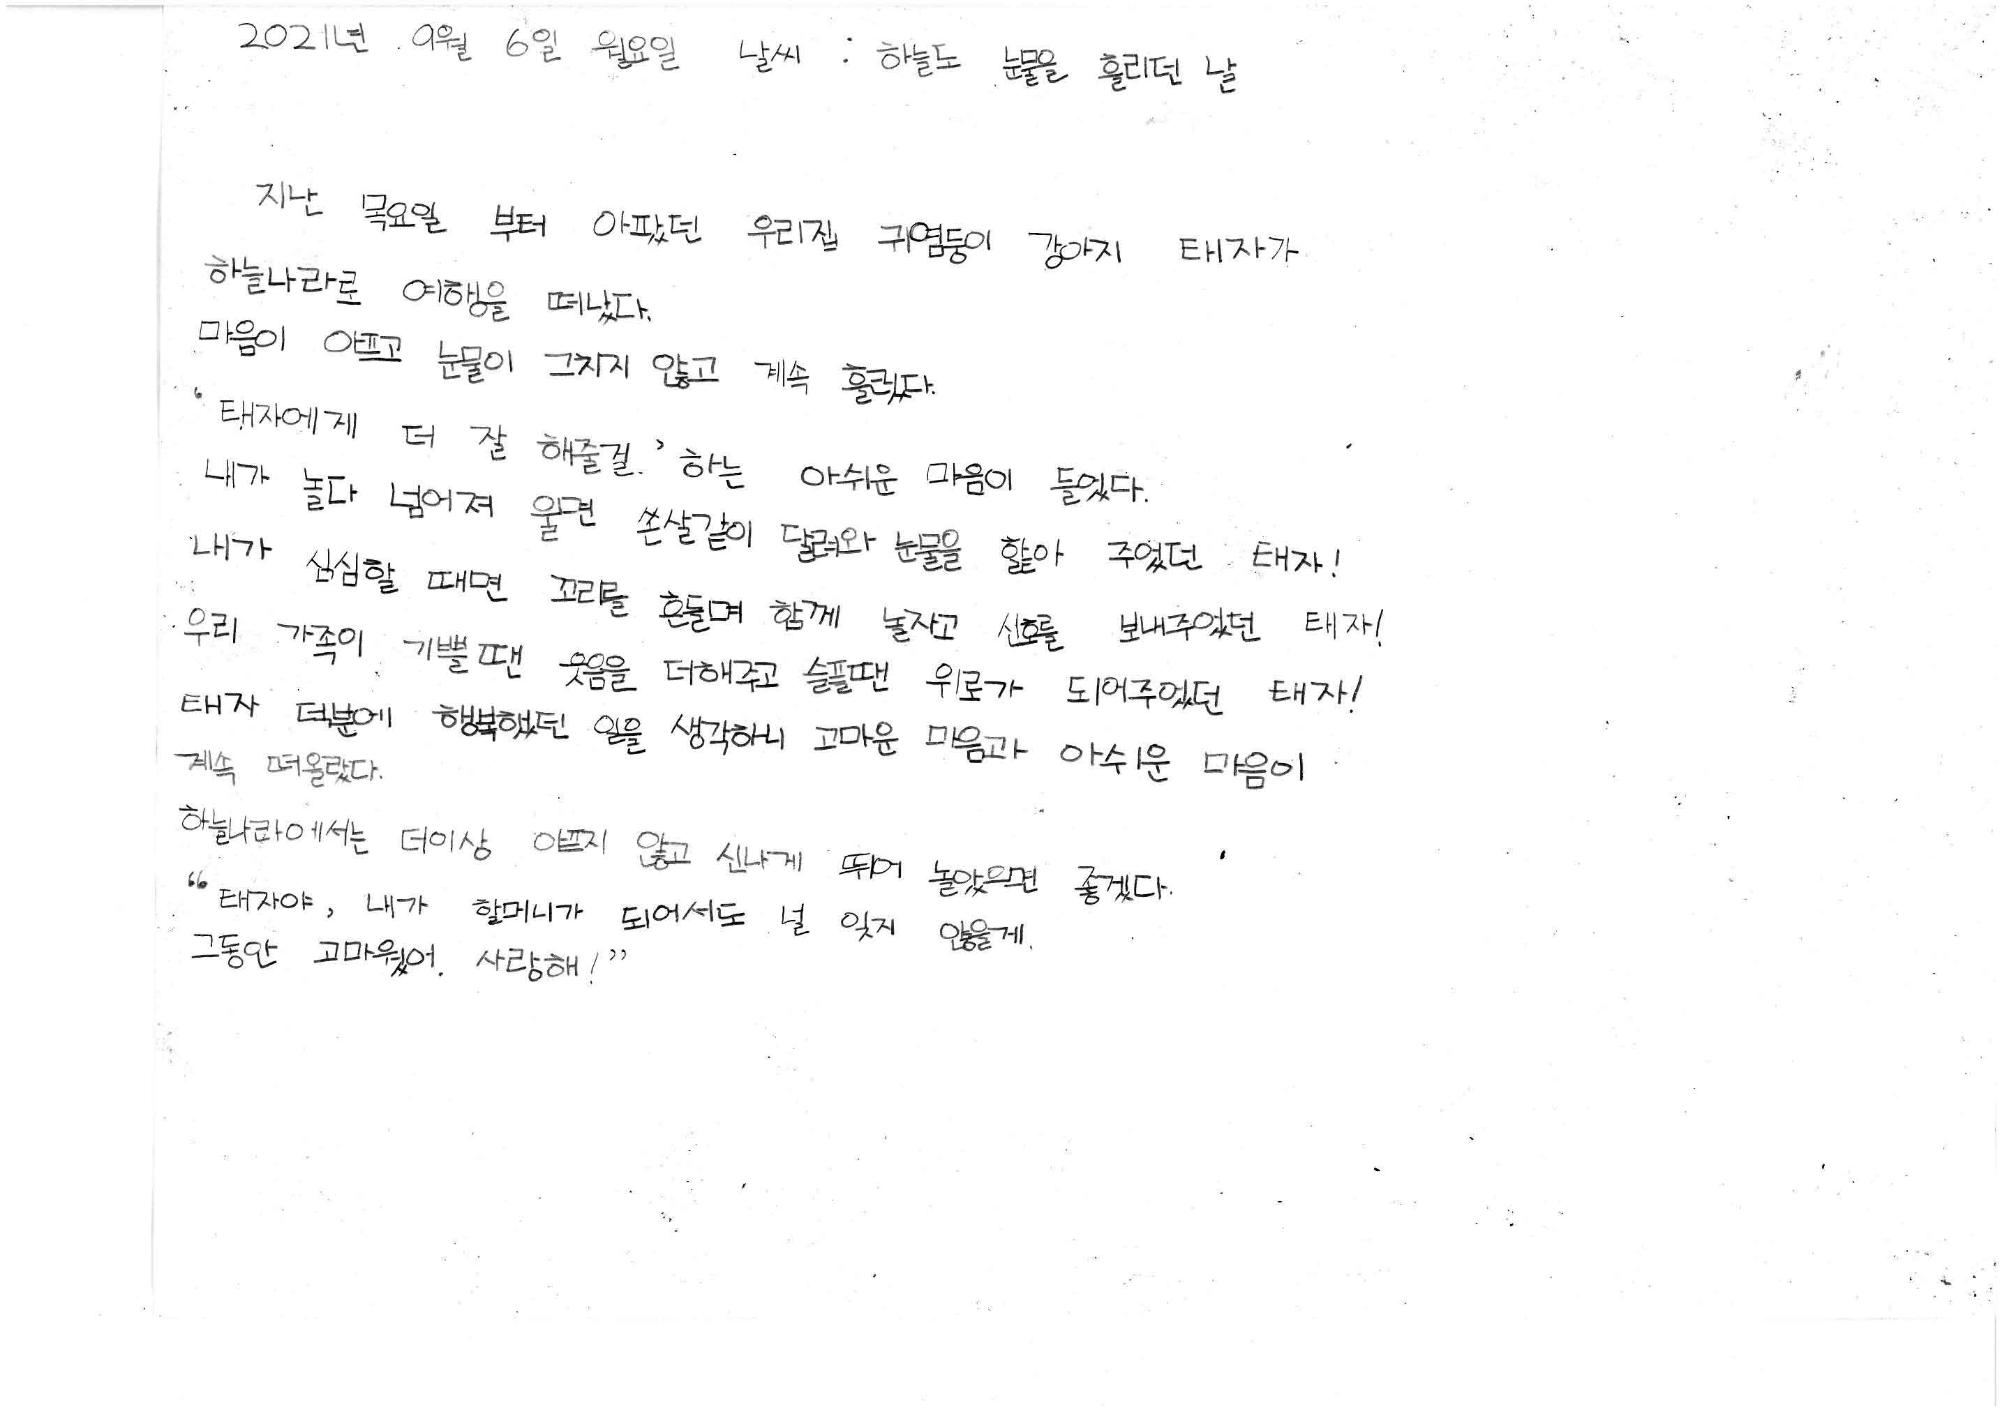 2021년 9월 6일 월요일 날씨 : 하늘도 눈물을 흘리던 날
지난 목요일 부터 아팠던 우리집 귀염둥이 강아지 태자가
하늘나라로 여행을 떠났다.
마음이 아프고 눈물이 그치지 않고 계속 흘렀다.
'태자에게 더 잘 해줄걸.' 하는 아쉬운 마음이 들었다.
내가 놀다 넘어져 울면 쏜살같이 달려와 눈물을 핥아 주었던 태자!
내가 심심할 때면 꼬리를 흔들며 함께 놀자고 신호를 보내주었던 태자!
우리 가족이 기쁠땐 웃음을 더해주고 슬플땐 위로가 되어주었던 태자!
태자 덕분에 행복했던 일을 생각하니 고마운 마음과 아쉬운 마음이
계속 떠올랐다.
하늘나라에서는 더이상 아프지 않고 신나게 뛰어 놀았으면 좋겠다.
"태자야, 내가 할머니가 되어서도 널 잊지 않을게.
그동안 고마웠어. 사랑해!"